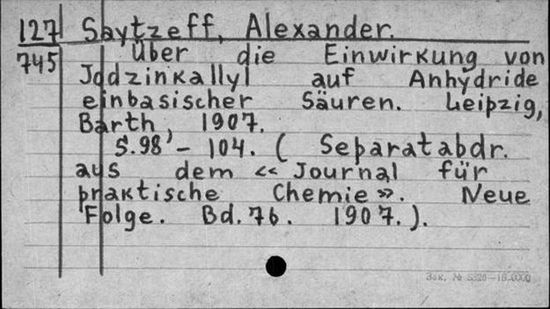 127 Saytzeff, Alexander.
745 Über die Einwirkung von
Jodzinkallyl auf Anhydride
einbasischer Säuren. Leipzig,
Barth, 1907.
S. 98 - 104. ( Separatabdr.
aus dem « Journal für
praktische Chemie ». Neue
Folge. Bd. 76. 1907. ).
Зак. №